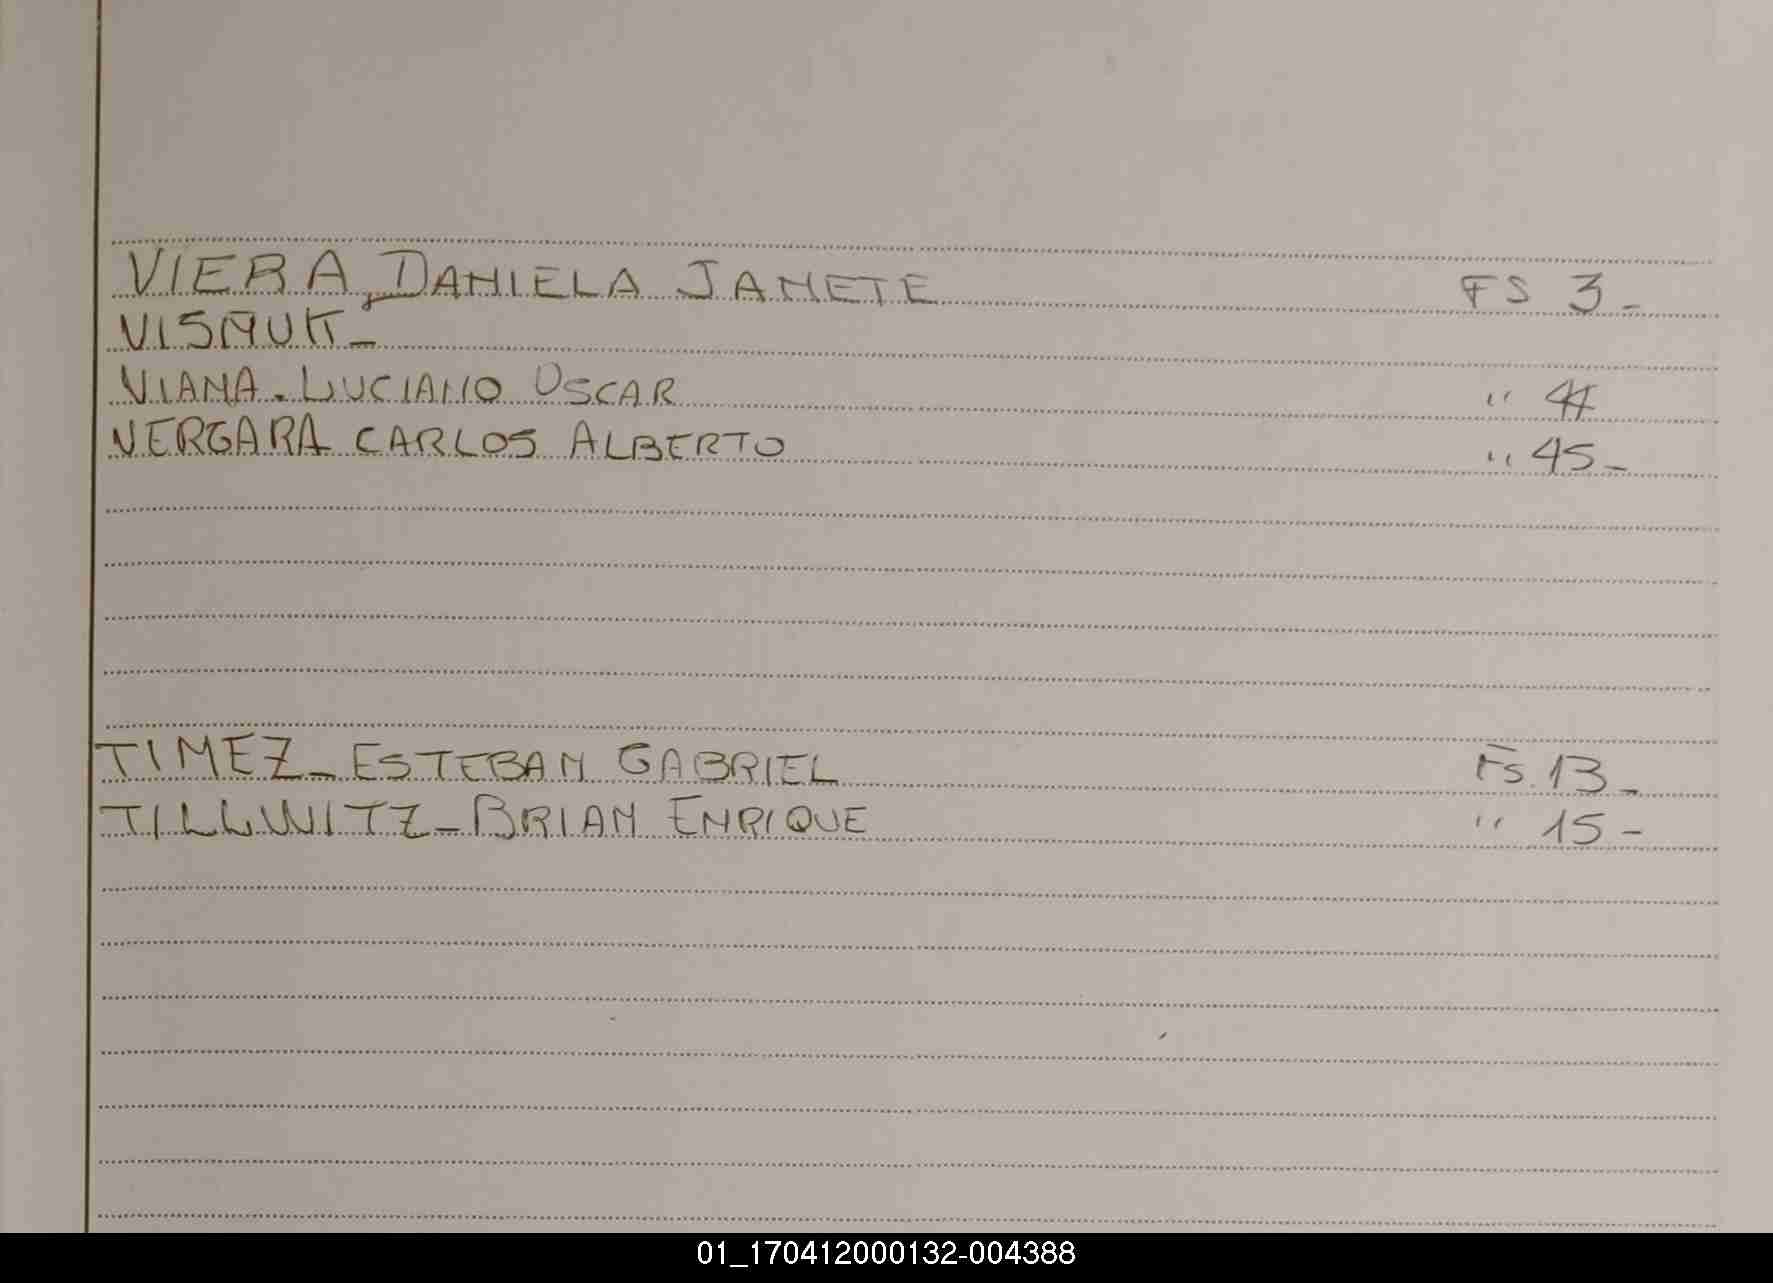 VIERA, DANIELA JANETE FS 3-
VISMUK-
VIANA. LUCIANO OSCAR " 44
VERGARA CARLOS ALBERTO " 45-
TIMEZ-ESTEBAN GABRIEL FS 13-
TILLWITZ-BRIAN ENRIQUE " 15-
01_170412000132-004388